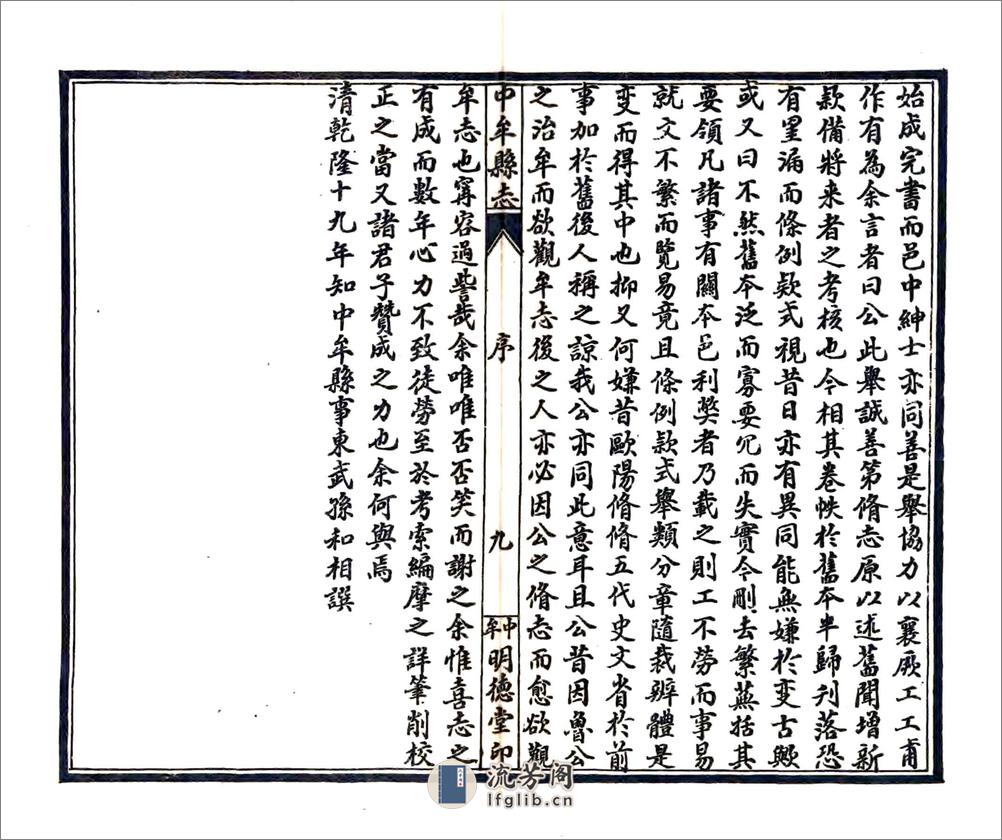 始成完書而邑中紳士亦同善是舉協力以襄厥工工甫
作有為余言者曰公此舉誠善第脩志原以述舊聞增新
款備將来者之考核也今相其卷帙於舊本半歸刋落恐
有罣漏而條例欵式視昔日亦有異同能無嫌於变古歟
或又曰不然舊本泛而寡要冗而失實今刪去繁蕪括其
要領凡諸事有關本邑利獘者乃載之則工不勞而事易
就文不繁而覽易竟且條例款式舉類分章隨裁辨體是
变而得其中也抑又何嫌昔歐陽脩脩五代史文省於前
事加於舊後人稱之諒我公亦同此意耳且公昔因魯公
之治牟而欲觀牟志後之人亦必因公之脩志而愈欲觀
中牟縣志
序
九
中牟明德堂印
牟志也寗容過訾哉余唯唯否否笑而謝之余惟喜志之
有成而數年心力不致徒勞至於考索編摩之詳筆削校
正之當又諸君子贊成之力也余何與焉
清乾隆十九年知中牟縣事東武孫和相譔
流芳阁
lfglib.cn